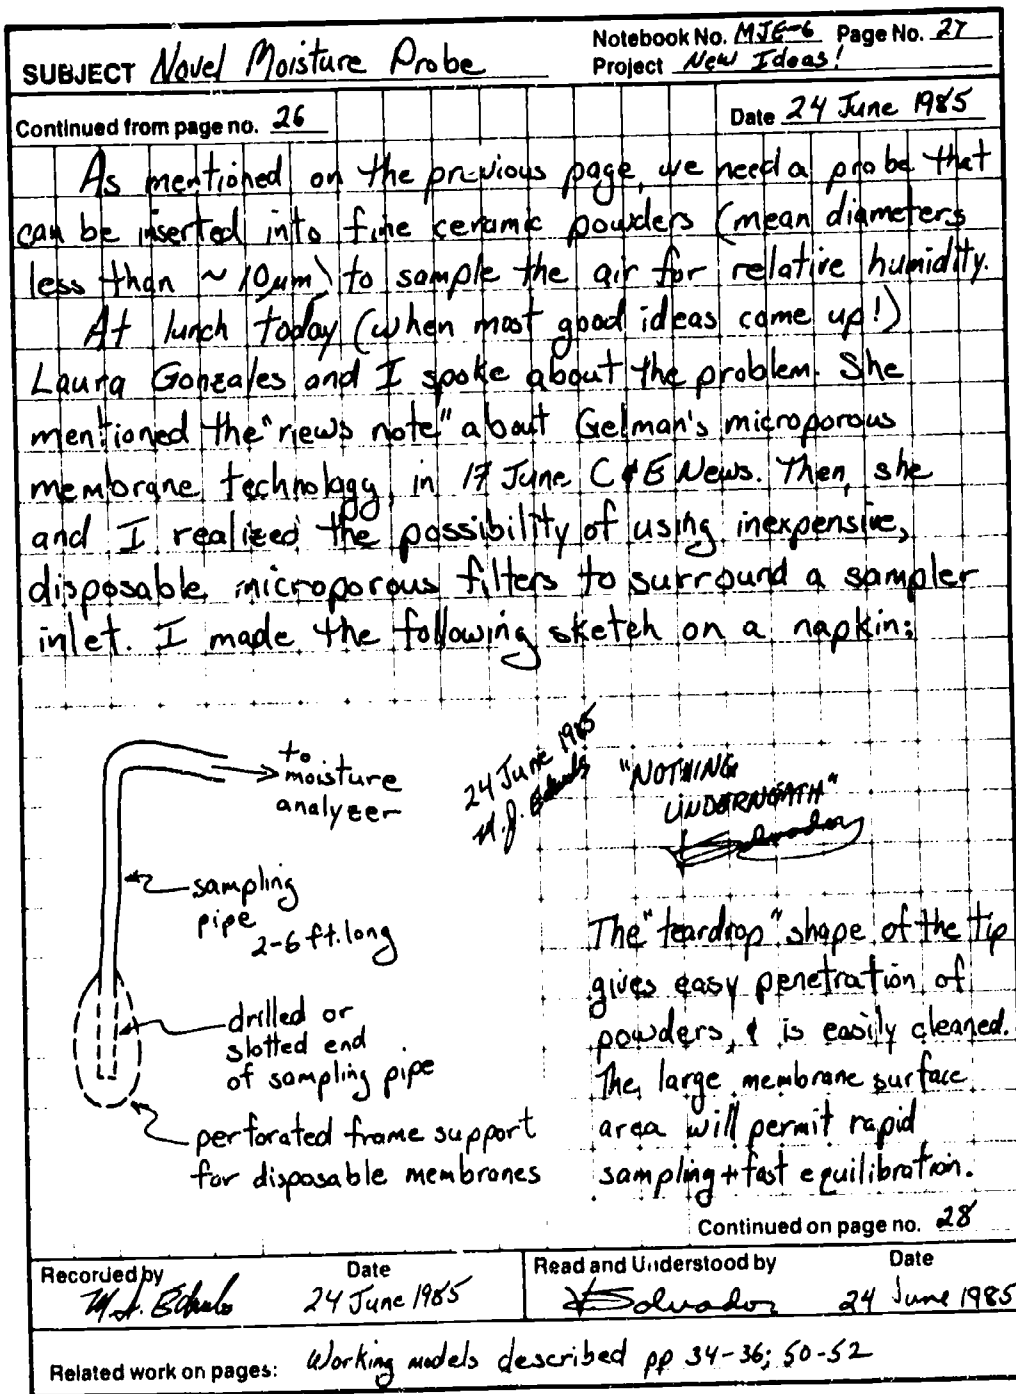 SUBJECT Novel Moisture Probe
Notebook No. MJE-6 Page No. 27
Project New Ideas!
Continued from page no. 26
Date 24 June 1985
As mentioned on the previous page, we need a probe that
can be inserted into fine ceramic powders (mean diameters
less than ~10μm) to sample the air for relative humidity.
At lunch today (when most good ideas come up!)
Laura Gonzales and I spoke about the problem. She
mentioned the "news note" about Gelman's microporous
membrane technology in 17 June C&E News. Then, she
and I realized the possibility of using inexpensive,
disposable microporous filters to surround a sampler
inlet. I made the following sketch on a napkin:
to
moisture
analyzer
24 June 1985
M. J. Edwards
"NOTHING
UNDERNEATH"
Salvador
sampling
pipe
2-6 ft. long
drilled or
slotted end
of sampling pipe
perforated frame support
for disposable membranes
The "teardrop" shape of the tip
gives easy penetration of
powders, & is easily cleaned.
The large membrane surface
area will permit rapid
sampling + fast equilibration.
Continued on page no. 28
Recorded by
Date
M. J. Edwards 24 June 1985
Read and Understood by
Date
Salvador 24 June 1985
Related work on pages: Working models described pp 34-36; 50-52